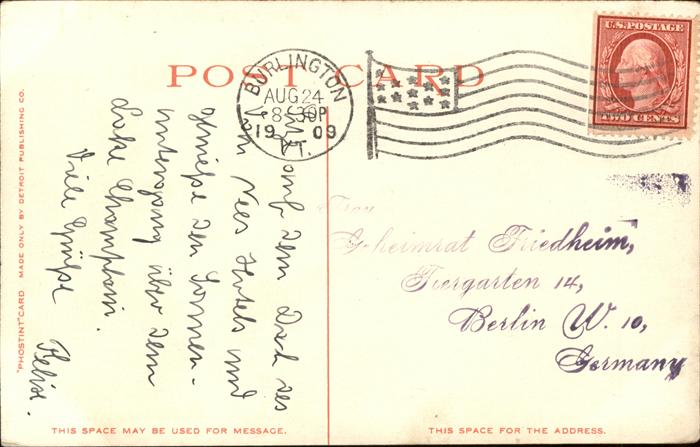 POST CARD
BURLINGTON
AUG 24
8 30P
1909
VT.
U.S. POSTAGE
TWO CENTS
auf dem Dach des
Van Ness Hotels und
genieße den Sonnen-
untergang über dem
Lake Champlain.
Viele Grüße
Felix.
Frau
Geheimrat Friedheim,
Tiergarten 14,
Berlin W. 10,
Germany
"PHOSTINT" CARD MADE ONLY BY DETROIT PUBLISHING CO.
THIS SPACE MAY BE USED FOR MESSAGE.
THIS SPACE FOR THE ADDRESS.